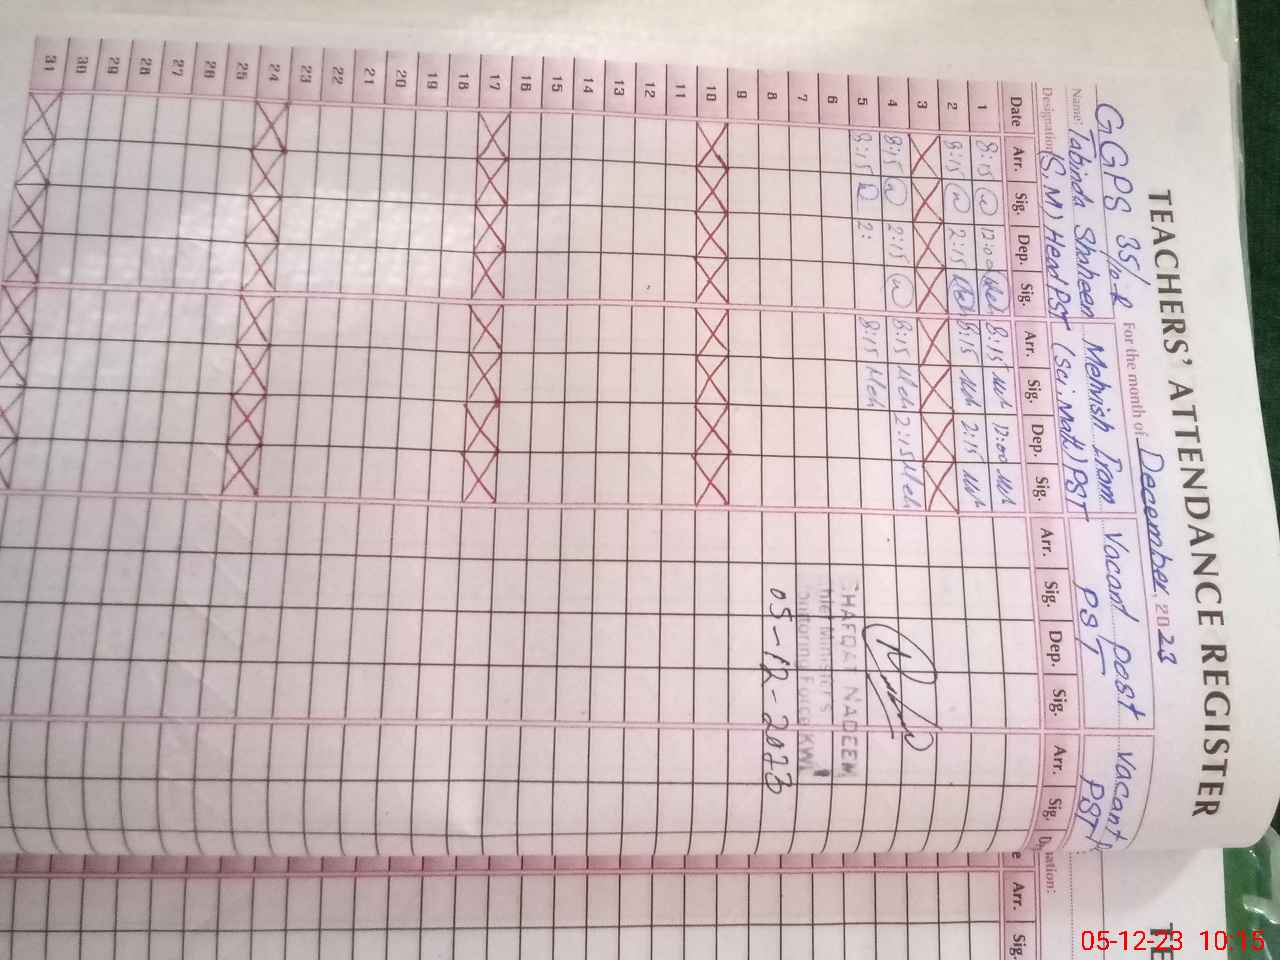 TEACHERS' ATTENDANCE REGISTER
GGPS 35/10-R For the month of December, 2023
Name: Tabinda Shaheen Mehvish Iram Vacant post Vacant
Designation (S.M) Head PST (Sci.Math) PST PST PST
Date Arr. Sig. Dep. Sig. Arr. Sig. Dep. Sig. Arr. Sig. Dep. Sig. Arr. Sig.
1 8:15 12:00 8:15 Meh 12:00 Meh
2 8:15 2:15 8:15 Meh 2:15 Meh
3
4 8:15 2:15 8:15 Meh 2:15 Meh
5 8:15 2: 8:15 Meh
6
7
8
9
10
11
12
13
14
15
16
17
18
19
20
21
22
23
24
25
26
27
28
29
30
31
SHAFQAT NADEEM
Chief Minister's
Monitoring Force KWL
05-12-2023
TE
Arr.
Sig.
05-12-23 10:15